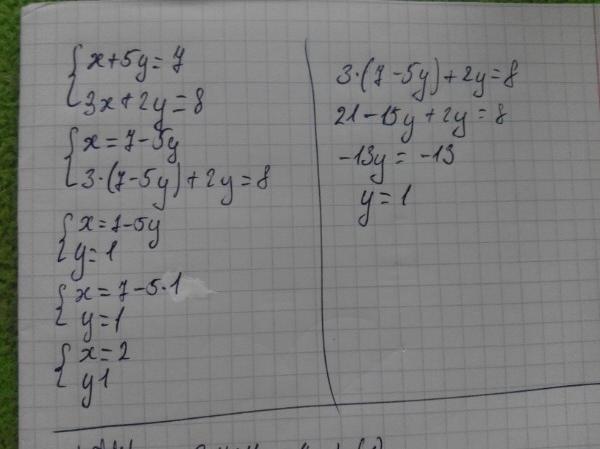 x+5y=7
3x+2y=8
x=7-5y
3·(7-5y)+2y=8
x=7-5y
y=1
x=7-5·1
y=1
x=2
y1
3·(7-5y)+2y=8
21-15y+2y=8
-13y=-13
y=1